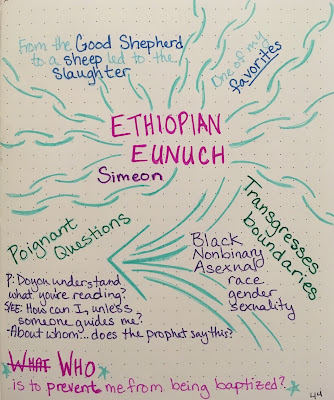 From the Good Shepherd
to a sheep led to the
slaughter
One of my
favorites
ETHIOPIAN
EUNUCH
Simeon
Transgresses
boundaries
Black
Nonbinary
Asexual
race
gender
sexuality
Poignant
Questions
P: Do you understand
what you're reading?
SEE: How can I, unless
someone guides me?
-About whom...does the prophet say this?
WHAT WHO
is to prevent me from being baptized?